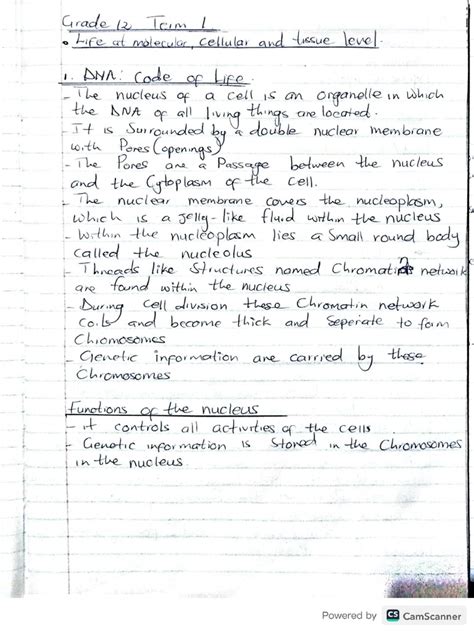 Grade 12 Term 1
• Life at molecular, cellular and tissue level.
1. DNA: Code of Life.
- The nucleus of a cell is an organelle in which
the DNA of all living things are located.
- It is Surrounded by a double nuclear membrane
with Pores (openings)
- The Pores are a Passage between the nucleus
and the Cytoplasm of the cell.
- The nuclear membrane covers the nucleoplasm,
which is a jelly-like fluid within the nucleus
- Within the nucleoplasm lies a Small round body
called the nucleolus
- Threads like Structures named Chromatin network
are found within the nucleus
- During cell division these Chromatin network
Coils and become thick and Seperate to form
Chromosomes
- Genetic information are carried by these
Chromosomes
Functions of the nucleus
- it controls all activities of the cells
- Genetic information is Stored in the Chromosomes
in the nucleus.
Powered by CS CamScanner